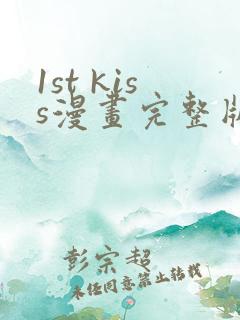 1st kis
s漫畫完整版
彭宗超
未经同意禁止转载